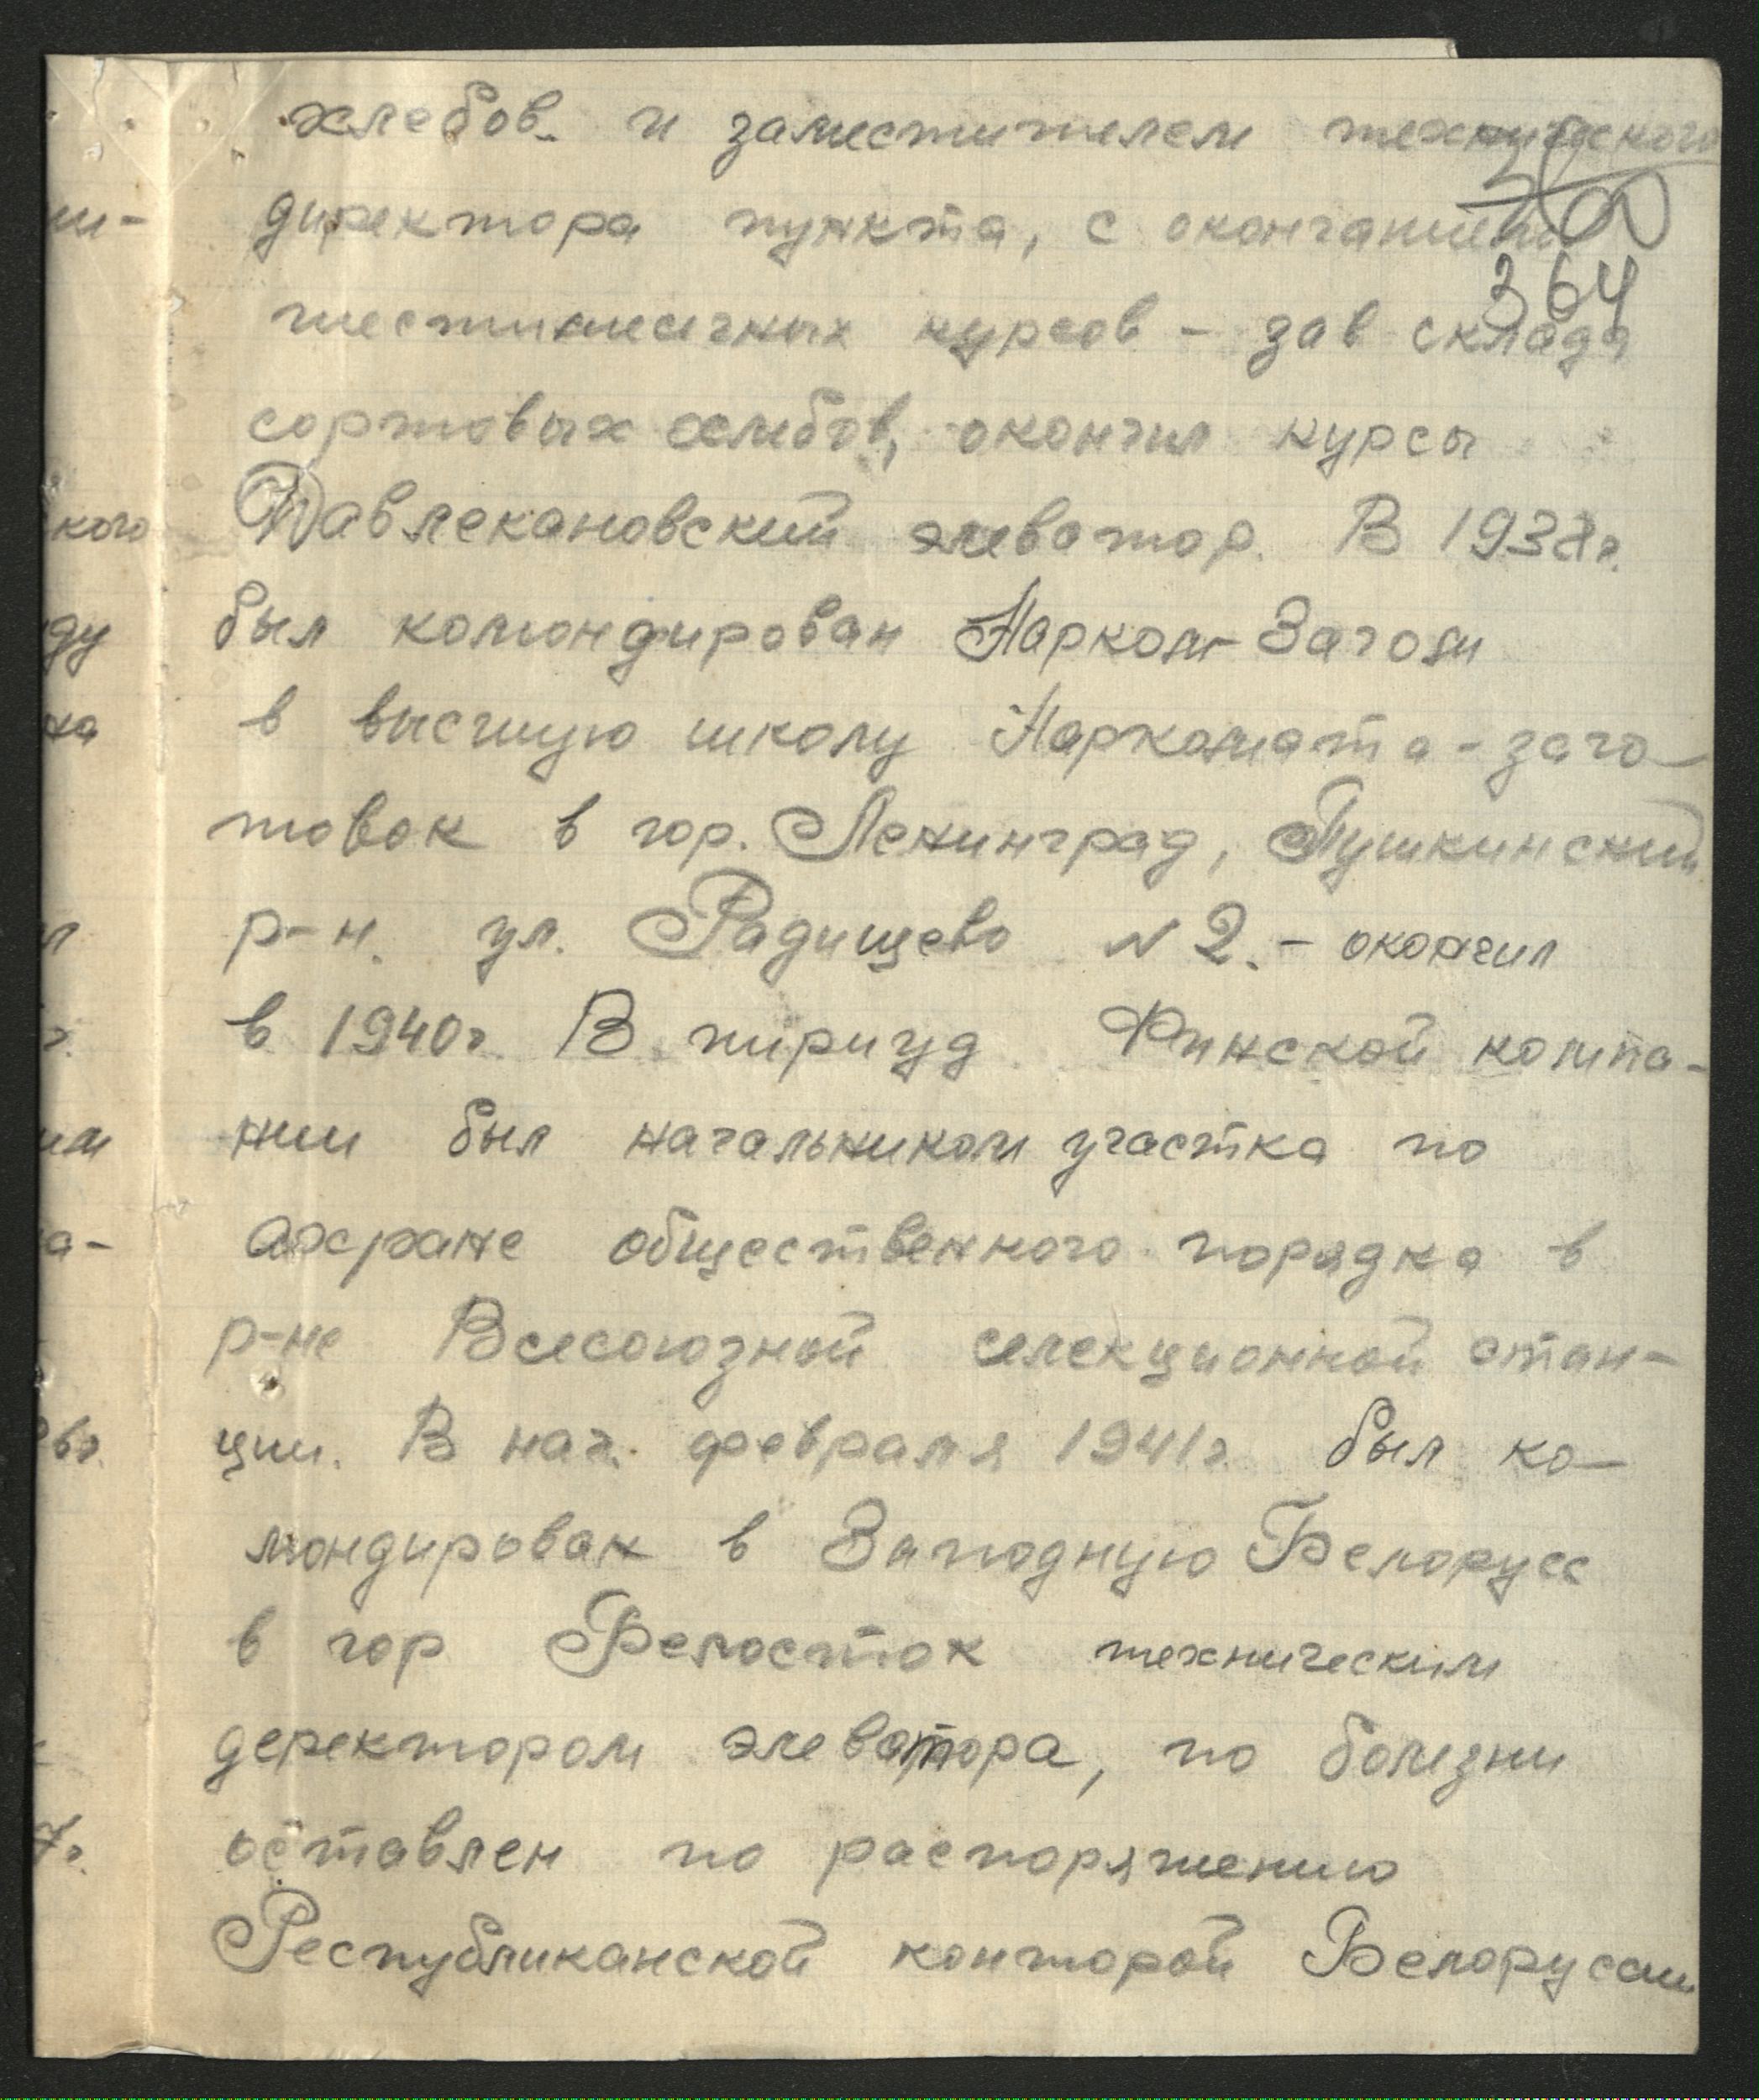 хлебов. и заместителем технического
директора пункта, с окончанием
364
шестимесячных курсов - зав склада
сортовых хлибов, окончил курсы
Давлекановский элеватор. В 1938г.
был комондирован Нарком-Загом
в высшую школу Наркомата-заго-
товок в гор. Ленинград, Пушкинский
р-н. ул. Радищево N 2. - окончил
в 1940г. В пириуд Финской компа-
нии был начальником участка по
охране общественного порядка в
р-не Всесоюзной селекционной стан-
ции. В нач. февраля 1941г. был ко-
мондирован в Западную Белорусс
в гор Белосток техническим
деректором элеватора, по болезни
оставлен по распоряжению
Республиканской конторой Белоруссии